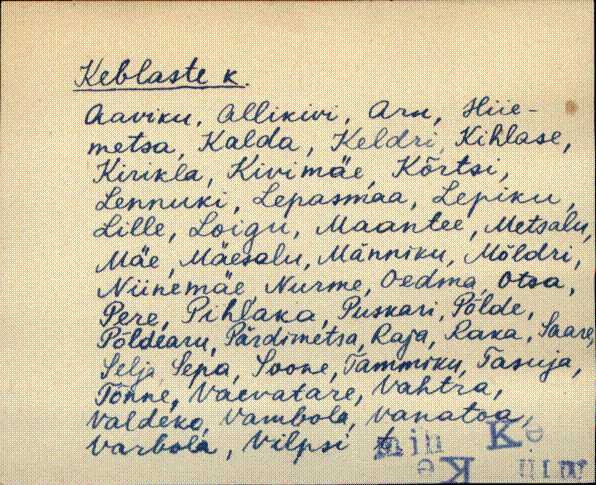 Keblaste k.
Aaviku, Allikivi, Aru, Hiie-
metsa, Kalda, Keldri, Kihlase,
Kirikla, Kivimäe, Kõrtsi,
Lennuki, Lepasmaa, Lepiku,
Lille, Loigu, Maantee, Metsalu,
Mäe, Mäesalu, Männiku, Möldri,
Niinemäe, Nurme, Oedma, Otsa,
Pere, Pihlaka, Puskari, Põlde,
Põldearu, Pärdimetsa, Raja, Raka, Saare,
Selja, Sepa, Soone, Tammiku, Tasuja,
Tõnne, Vaevatare, Vahtra,
Valdeko, Vambola, Vanatoa,
Varbola, Vilpsi
Ke